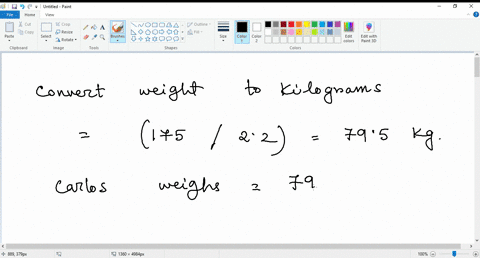 Untitled - Paint
File Home View
Paste
Cut
Copy
Select
Crop
Resize
Rotate
Brushes
Outline
Fill
Size
Color 1
Color 2
Edit colors
Edit with Paint 3D
Clipboard Image Tools Shapes Colors
convert weight to kilograms
= (175 / 2.2) = 79.5 Kg.
Carlos weighs = 79
889, 379px
1380 × 4984px
100%